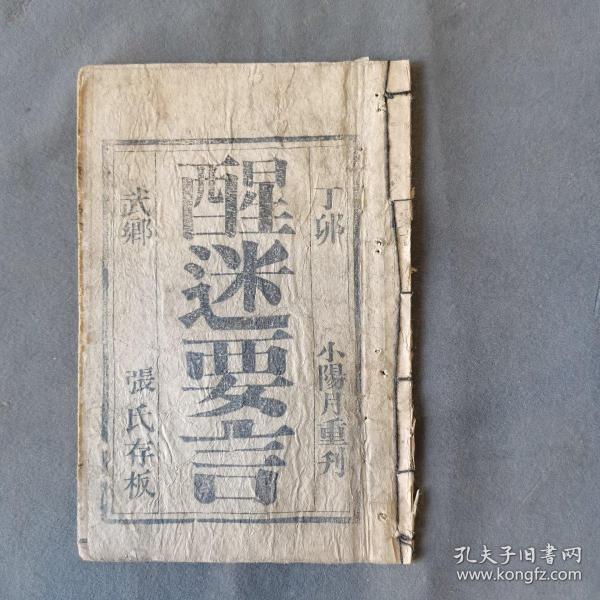 丁卯 小陽月重刊
醒迷要言
武鄉 張氏存板
孔夫子旧书网
www.kongfz.com